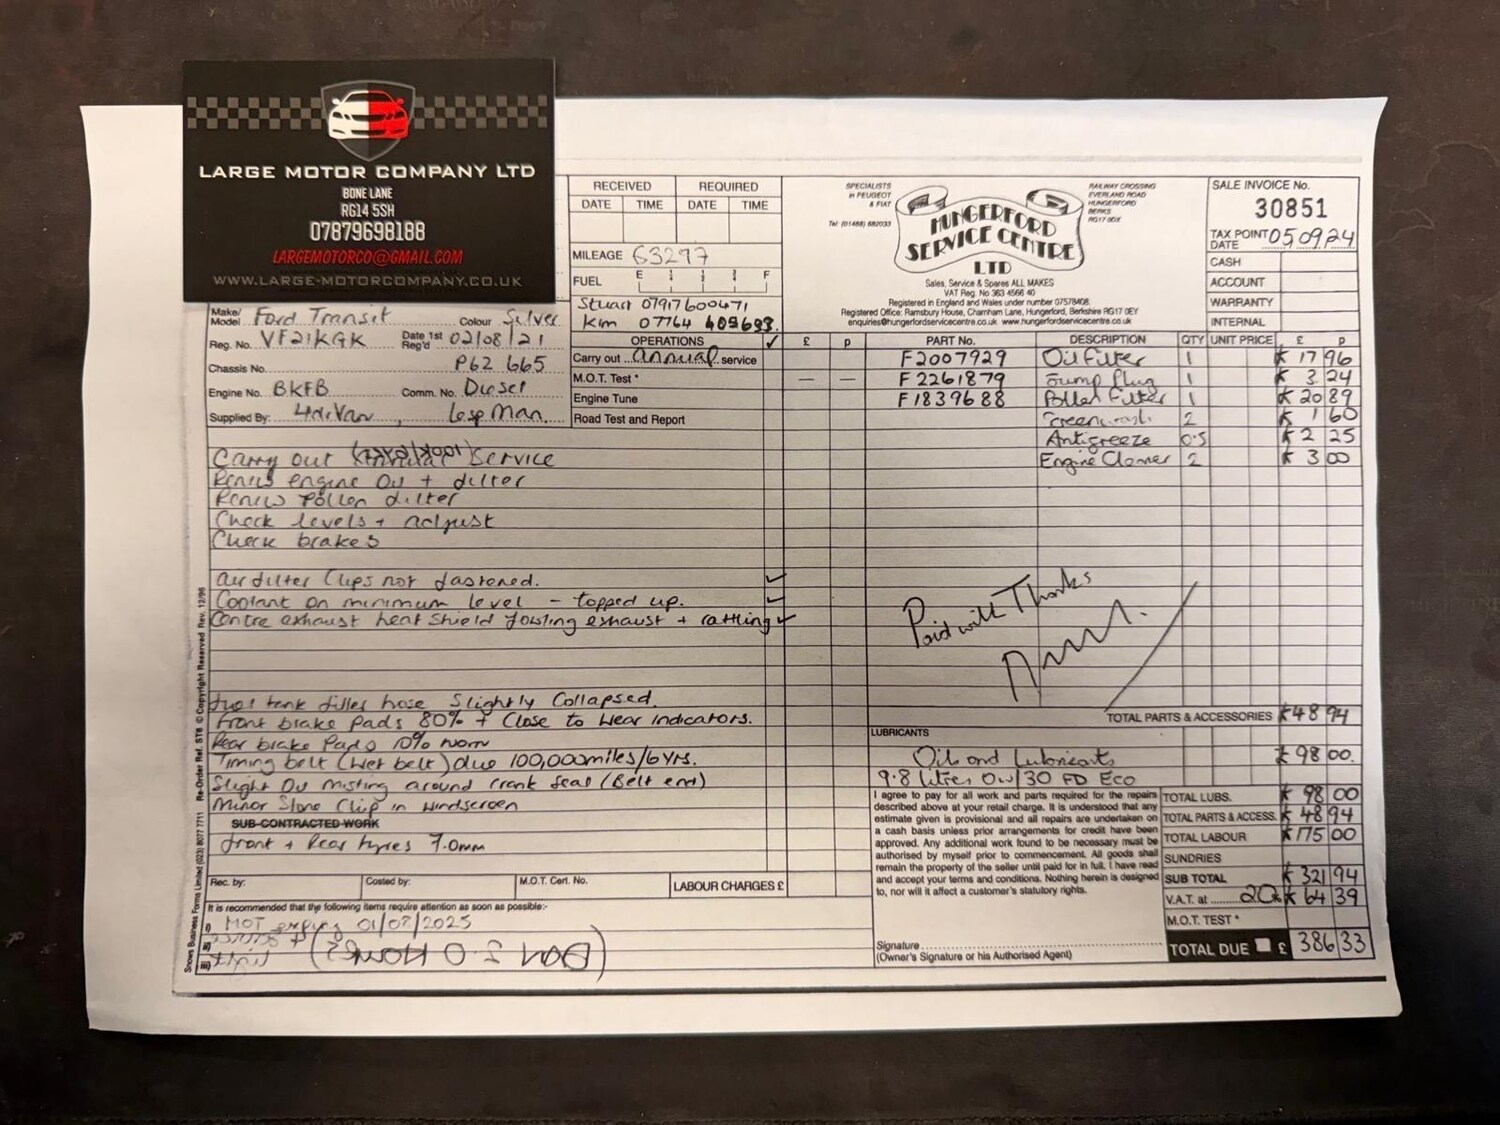 LARGE MOTOR COMPANY LTD
BONE LANE
RG14 5SH
07879698188
LARGEMOTORCO@GMAIL.COM
WWW.LARGE-MOTORCOMPANY.CO.UK
RECEIVED REQUIRED
DATE TIME DATE TIME
MILEAGE 63297
FUEL E F
Stuart 07917600471
Kim 07764 405693
SPECIALISTS
in PEUGEOT
& FIAT
Tel: (01488) 682033
HUNGERFORD
SERVICE CENTRE
LTD
RAILWAY CROSSING
EVERLAND ROAD
HUNGERFORD
BERKS
RG17 0DX
Sales, Service & Spares ALL MAKES
VAT Reg. No 363 4566 40
Registered in England and Wales under number 07578408.
Registered Office: Ramsbury House, Charnham Lane, Hungerford, Berkshire RG17 0EY
enquiries@hungerfordservicecentre.co.uk www.hungerfordservicecentre.co.uk
SALE INVOICE No.
30851
TAX POINT DATE 050924
CASH
ACCOUNT
WARRANTY
INTERNAL
Make/Model Ford Transit Colour Silver
Reg. No. VF21KGK Date 1st Reg'd 02/08/21
Chassis No. P62 665
Engine No. BKFB Comm. No. Diesel
Supplied By:
OPERATIONS ✓ £ p
Carry out annual service
M.O.T. Test * — —
Engine Tune
Road Test and Report
PART No. DESCRIPTION QTY UNIT PRICE £ p
F2007929 Oil Filter 1 17 96
F2261879 Sump Plug 1 3 24
F1839688 Pollen Filter 1 20 89
Screenwash 2 1 60
Antifreeze 0.5 2 25
Engine Cleaner 2 3 00
Carry out Service
Renew engine Oil + filter
Renew Pollen filter
Check levels + adjust
Check brakes
Air filter Clips not fastened. ✓
Coolant on minimum level - topped up. ✓
Centre exhaust heat shield fouling exhaust + rattling ✓
Fuel tank filler hose Slightly Collapsed.
Front brake Pads 80% + Close to wear indicators.
Rear brake Pads 10% worn
Timing belt (wet belt) due 100,000miles/6yrs.
Slight Oil misting around crank seal (Belt end)
Minor Stone Chip in windscreen
SUB-CONTRACTED WORK
front + Rear tyres 7.0mm
Paid with Thanks
TOTAL PARTS & ACCESSORIES 48 94
LUBRICANTS
Oils and Lubricants 98 00
9.8 litres 0w/30 FD Eco
I agree to pay for all work and parts required for the repairs
described above at your retail charge. It is understood that any
estimate given is provisional and all repairs are undertaken on
a cash basis unless prior arrangements for credit have been
approved. Any additional work found to be necessary must be
authorised by myself prior to commencement. All goods shall
remain the property of the seller until paid for in full. I have read
and accept your terms and conditions. Nothing herein is designed
to, nor will it affect a customer's statutory rights.
TOTAL LUBS. 98 00
TOTAL PARTS & ACCESS. 48 94
TOTAL LABOUR 175 00
SUNDRIES
SUB TOTAL 321 94
V.A.T. at 20% 64 39
M.O.T. TEST *
TOTAL DUE £ 386 33
Rec. by: Costed by: M.O.T. Cert. No. LABOUR CHARGES £
It is recommended that the following items require attention as soon as possible:-
i) MOT expiry 01/07/2025
ii)
iii)
Signature
(Owner's Signature or his Authorised Agent)
Snows Business Forms Limited (023) 8077 7711 Re-Order Ref. ST8 © Copyright Reserved Rev. 12/96